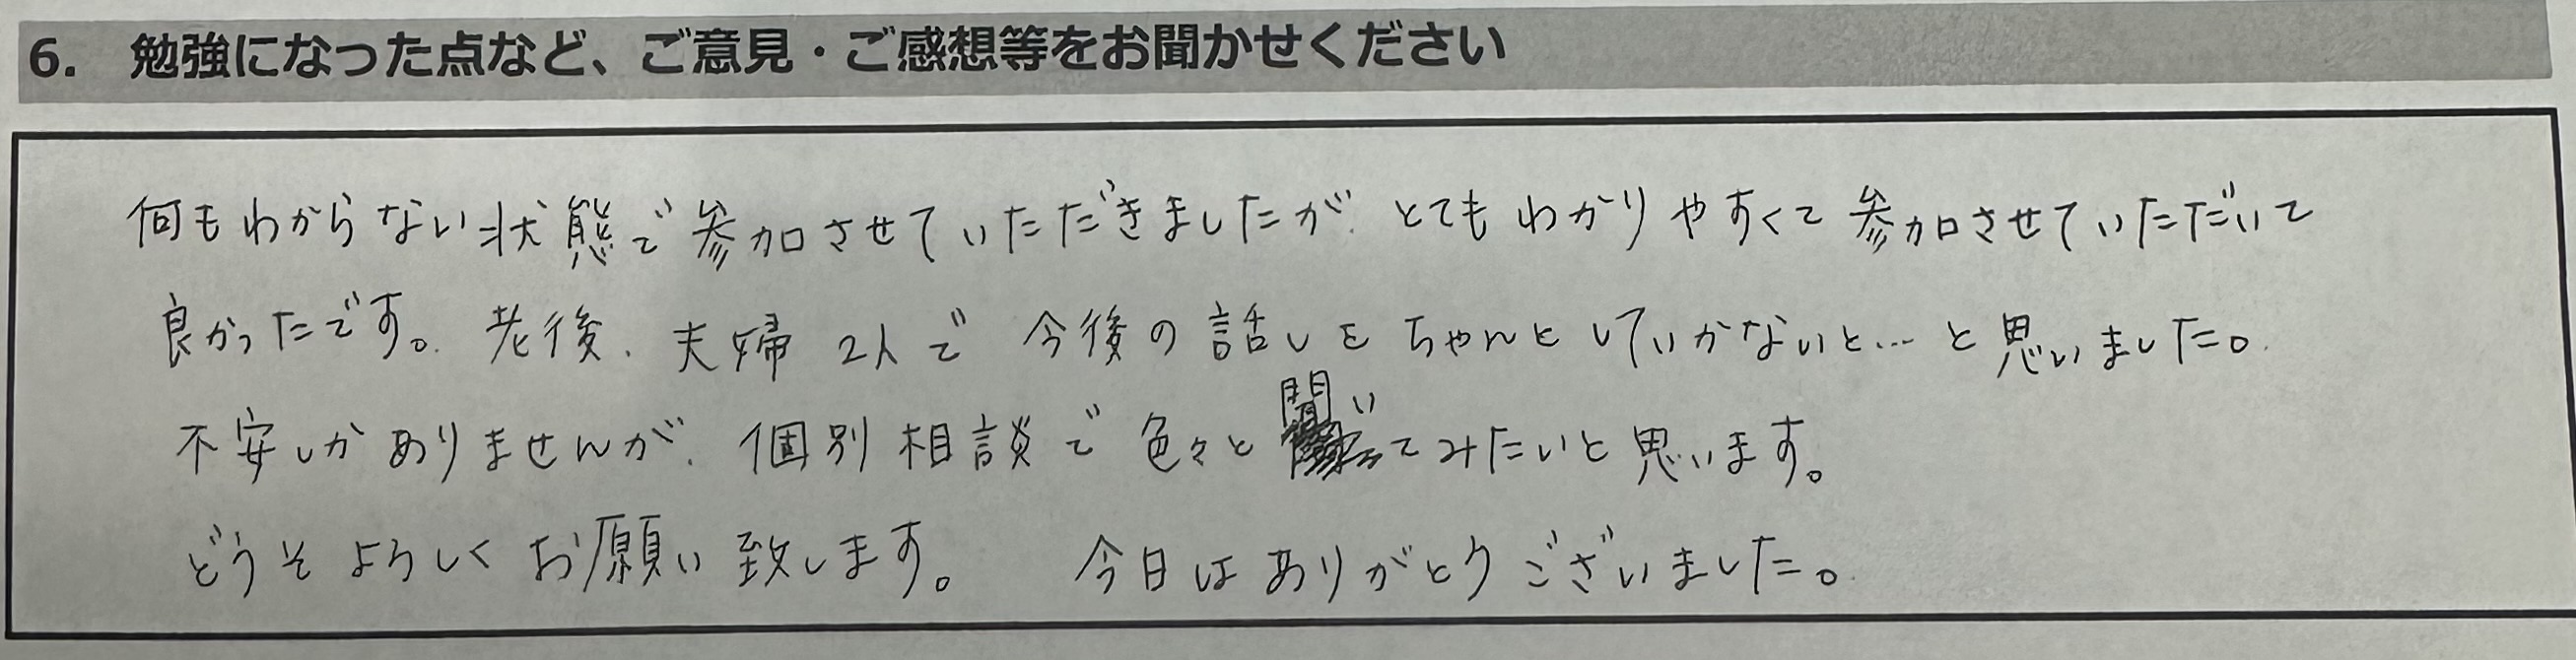 6. 勉強になった点など、ご意見・ご感想等をお聞かせください
何もわからない状態で参加させていただきましたが、とてもわかりやすくて参加させていただいて
良かったです。老後、夫婦2人で今後の話しをちゃんとしていかないと…と思いました。
不安しかありませんが、個別相談で色々と聞いてみたいと思います。
どうぞよろしくお願い致します。 今日はありがとうございました。